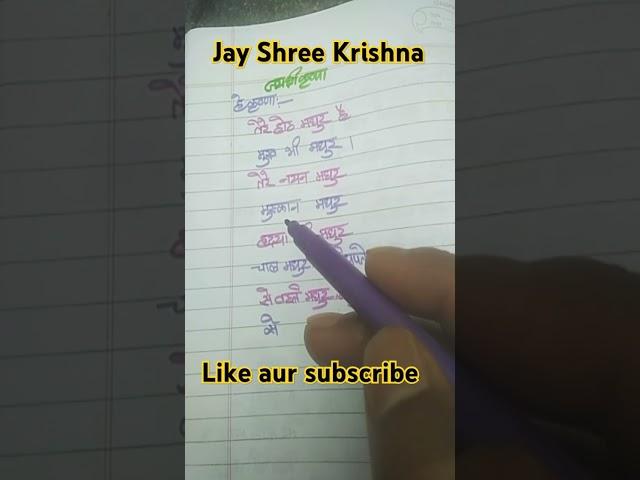 Jay Shree Krishna
जय श्री कृष्णा
हे कृष्णा :-
तेरे होठ मधुर है
मुख भी मधुर ।
तेरे नयन मधुर
मुस्कान मधुर
हृदया मधुर
चाल मधुर
मधुर
से
Like aur subscribe